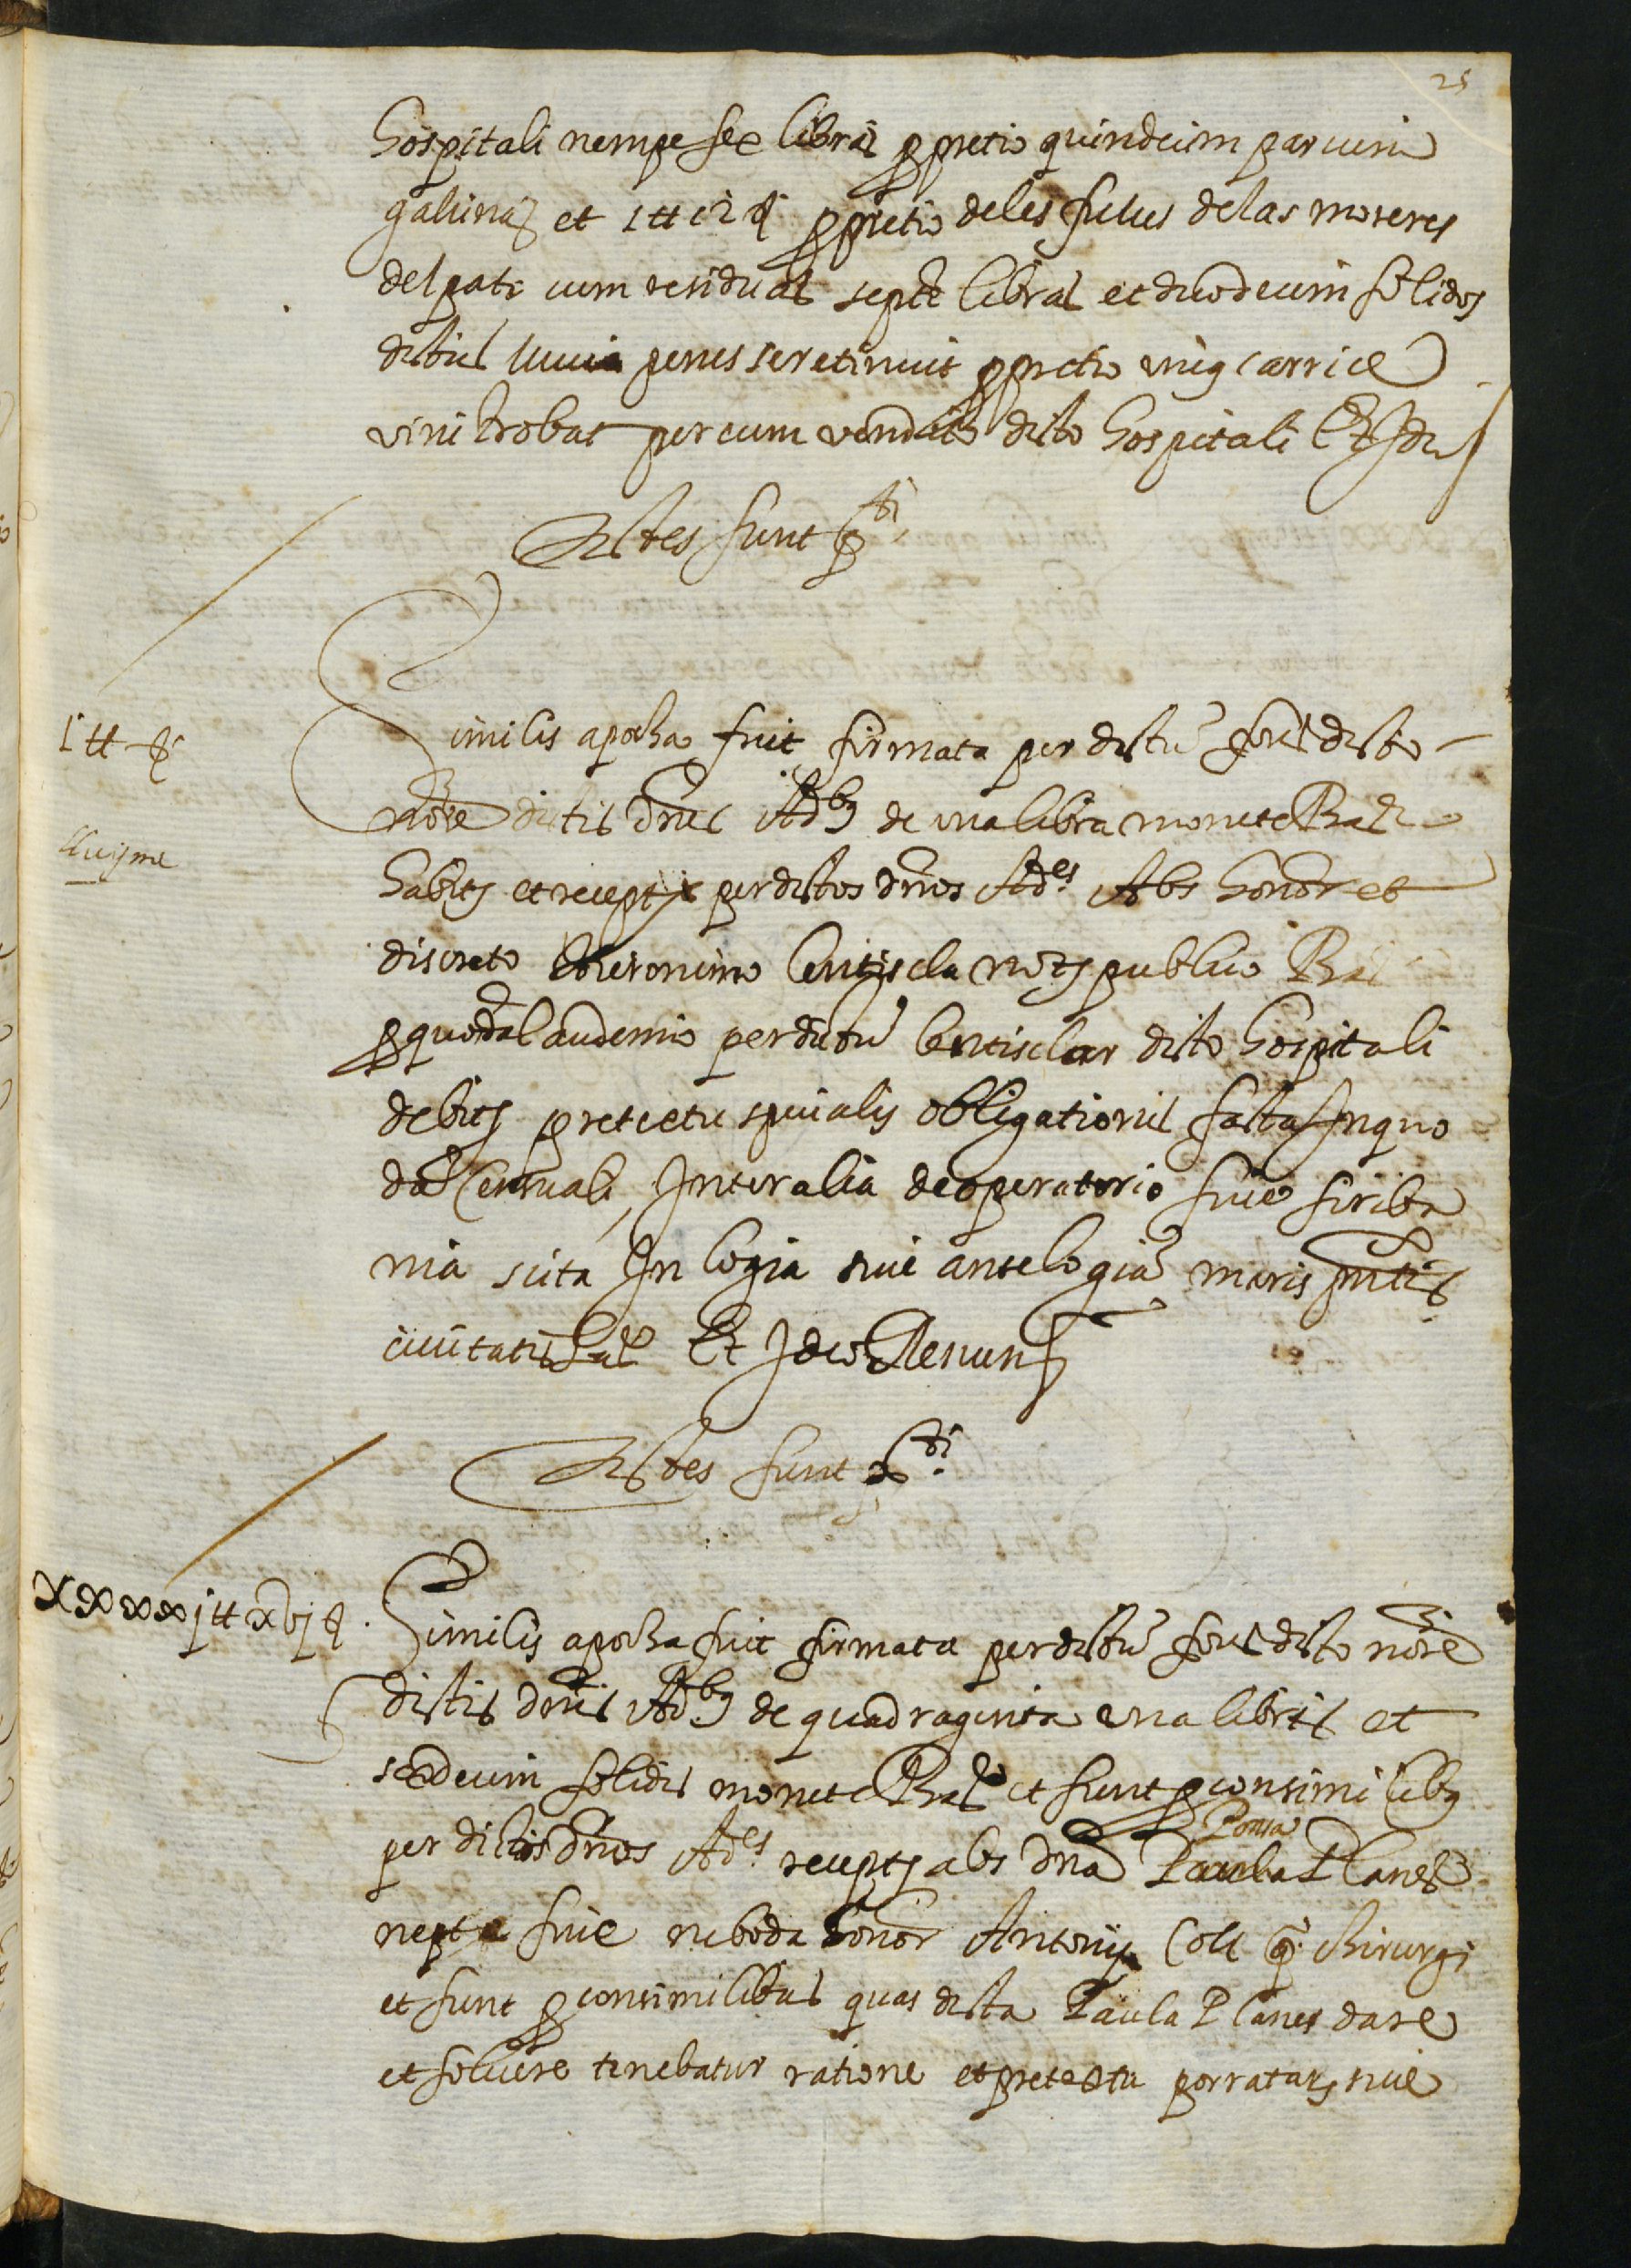 25
hospitali nempe sex libras p pretio quindecim par cum
galinaz et 1 tt 12 ꝑ pretio de les fulles de las moreres
del pati cum residuas septe libras et duodecim solidos
dictus penes se retinuit p pretio unig carrice
vini trobat per eum vendito dicto hospitali Et Ideo
Testes sunt pdi
Similis apocha fuit firmata per dictu dicto
noie dictis dnis Adbg de una libra monete Bar
habitz et receptz per dictos dnos Ades Abs honor et
discreto Hieronimo Lentiscla notz publico Bar
p quoda laudemio per dictu Lentisclar dicto hospitali
debitz pretextu specialis obligationis facta In quo
da Censuali, Inter alia de operatorio sive scriba
nia scita In logia sive ante logia maris pntis
civitatis Bar Et Ideo Renun
Testes sunt pdi
1 tt
lluysme
xxxxj tt xvj
Similis apocha fuit firmata per dictu dicto noie
dictis dnis Adbg de quadraginta una libris et
sexdecim solidis monete Bar et sunt p consimilibg
per dictos dnos Ades receptz abs dna Paula Ponsa Planes
nepta sive neboda honor Antonij Coll q chirurgi
et sunt p consimilibus quas dicta Paula Planes dare
et solvere tenebatur ratione et pretextu porratarz sive